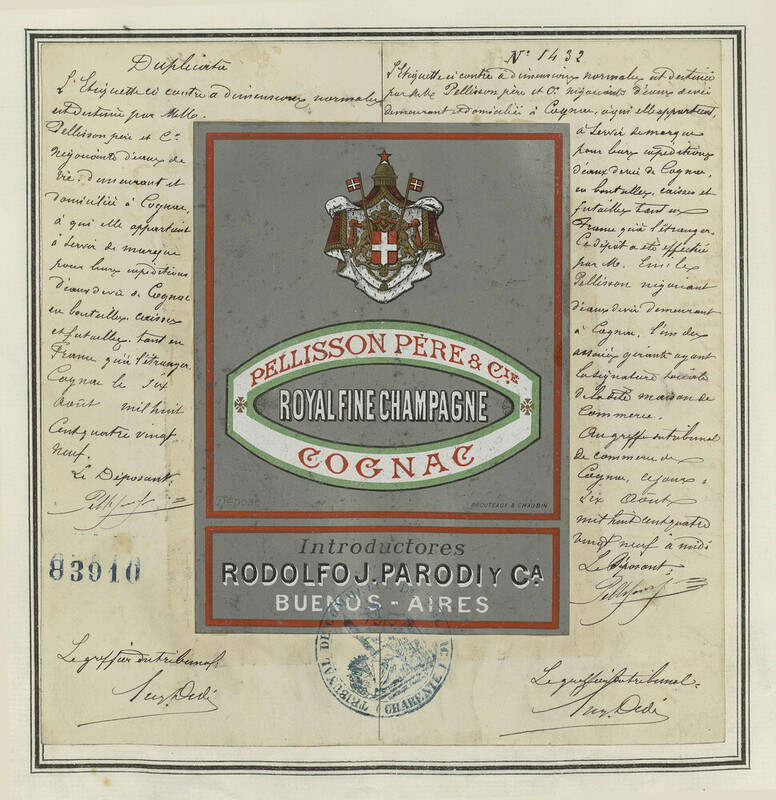 Duplicata
L'Etiquette ci contre à dimensions normales
est destinée par MM.
Pellisson père et Cie
négociants d'eaux de
vie, demeurant et
domiciliés à Cognac,
à qui elle appartient
à servir de marque
pour leurs expéditions
d'eaux de vie de Cognac
en bouteilles, caisses
et futailles, tant en
France qu'à l'étranger.
Cognac le six
Août mil huit
cent quatre vingt
neuf.
Le Déposant:
83910
Le greffier du tribunal:
No 1432
L'Etiquette ci contre à dimensions normales est destinée
par MM. Pellisson, père et Cie négociants d'eaux de vie
demeurant et domiciliés à Cognac, à qui elle appartient,
à servir de marque
pour leurs expéditions
d'eaux de vie de Cognac,
en bouteilles, caisses et
futailles tant en
France qu'à l'étranger.
Ce dépôt a été effectué
par M. Emile
Pellisson négociant
d'eaux de vie demeurant
à Cognac, l'un des
associés gérants ayant
la signature sociale
de la dite maison de
Commerce.
Au greffe du tribunal
de commerce de
Cognac, ce jour
six Août
mil huit cent quatre
vingt neuf à midi
Le Déposant:
Le greffier du tribunal:
PELLISSON PÈRE & CIE
ROYAL FINE CHAMPAGNE
COGNAC
Déposé
PROUTEAUX & CHAUDIN
Introductores
RODOLFO J. PARODI Y CA
BUENOS-AIRES
TRIBUNAL DE COMMERCE
CHARENTE